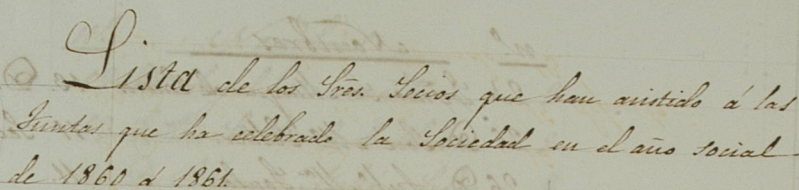 Lista de los Sres. Socios que han asistido á las
Juntas que ha celebrado la Sociedad en el año social
de 1860 á 1861.